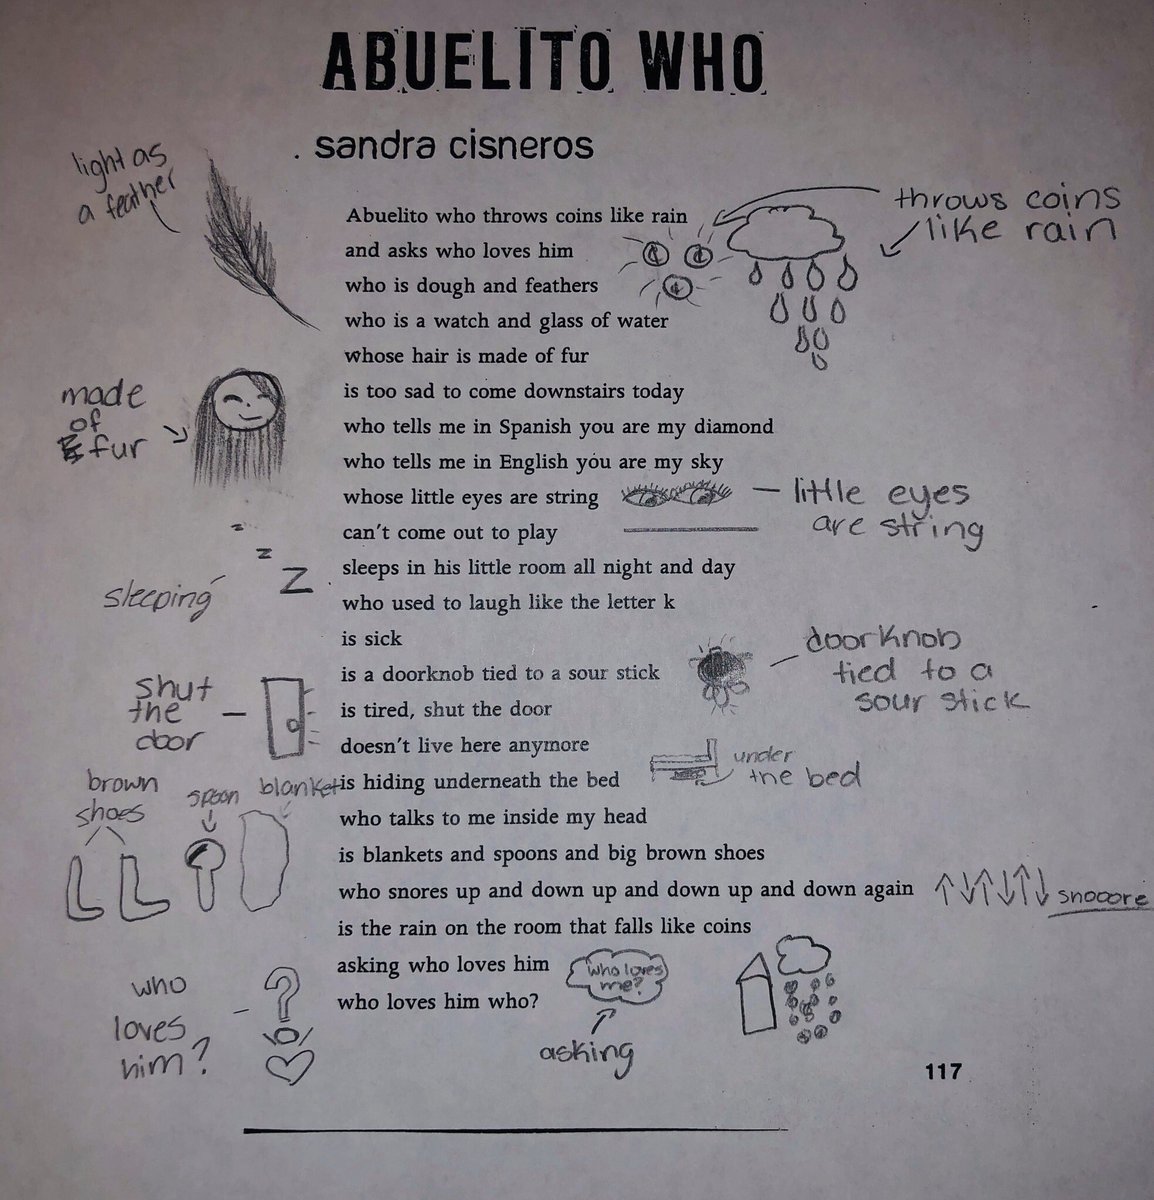 ABUELITO WHO
. sandra cisneros
light as
a feather
throws coins
like rain
Abuelito who throws coins like rain
and asks who loves him
who is dough and feathers
who is a watch and glass of water
whose hair is made of fur
is too sad to come downstairs today
who tells me in Spanish you are my diamond
who tells me in English you are my sky
whose little eyes are string
can't come out to play
sleeps in his little room all night and day
who used to laugh like the letter k
is sick
is a doorknob tied to a sour stick
is tired, shut the door
doesn't live here anymore
is hiding underneath the bed
who talks to me inside my head
is blankets and spoons and big brown shoes
who snores up and down up and down up and down again
is the rain on the room that falls like coins
asking who loves him
who loves him who?
made
of
fur
little eyes
are string
z
z
Z
sleeping
doorknob
tied to a
sour stick
shut
the
door
under
the bed
brown
shoes
spoon
blanket
snooore
who loves
me?
asking
who
loves
him?
?
117